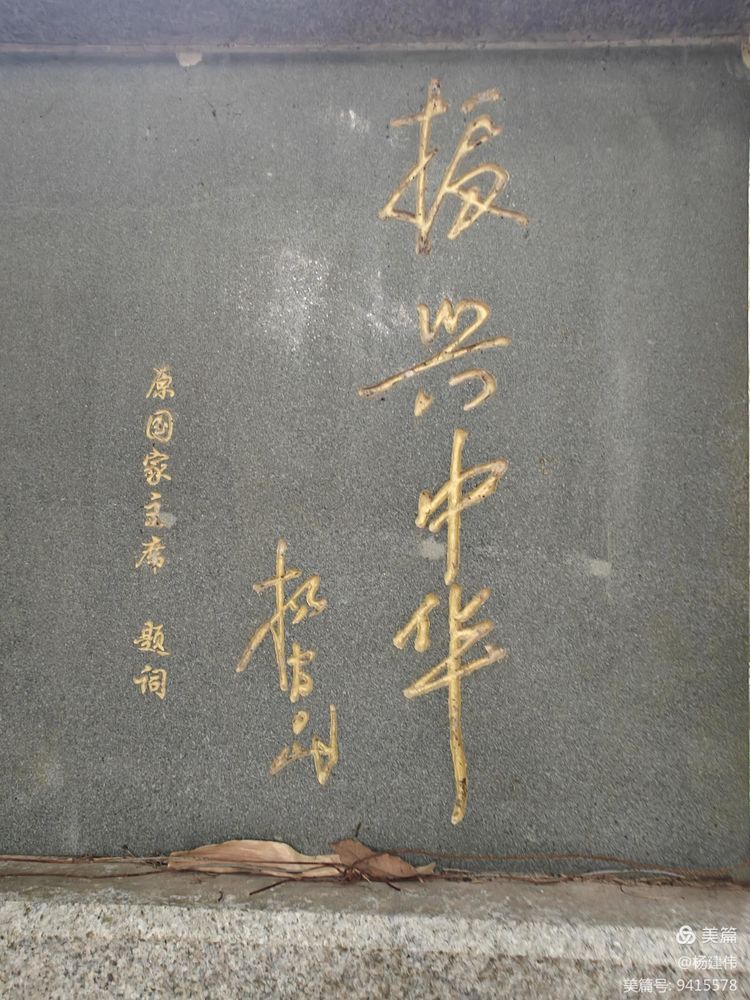 振兴中华
杨尚昆
原国家主席 题词
美篇
@杨建伟
美篇号: 9415578